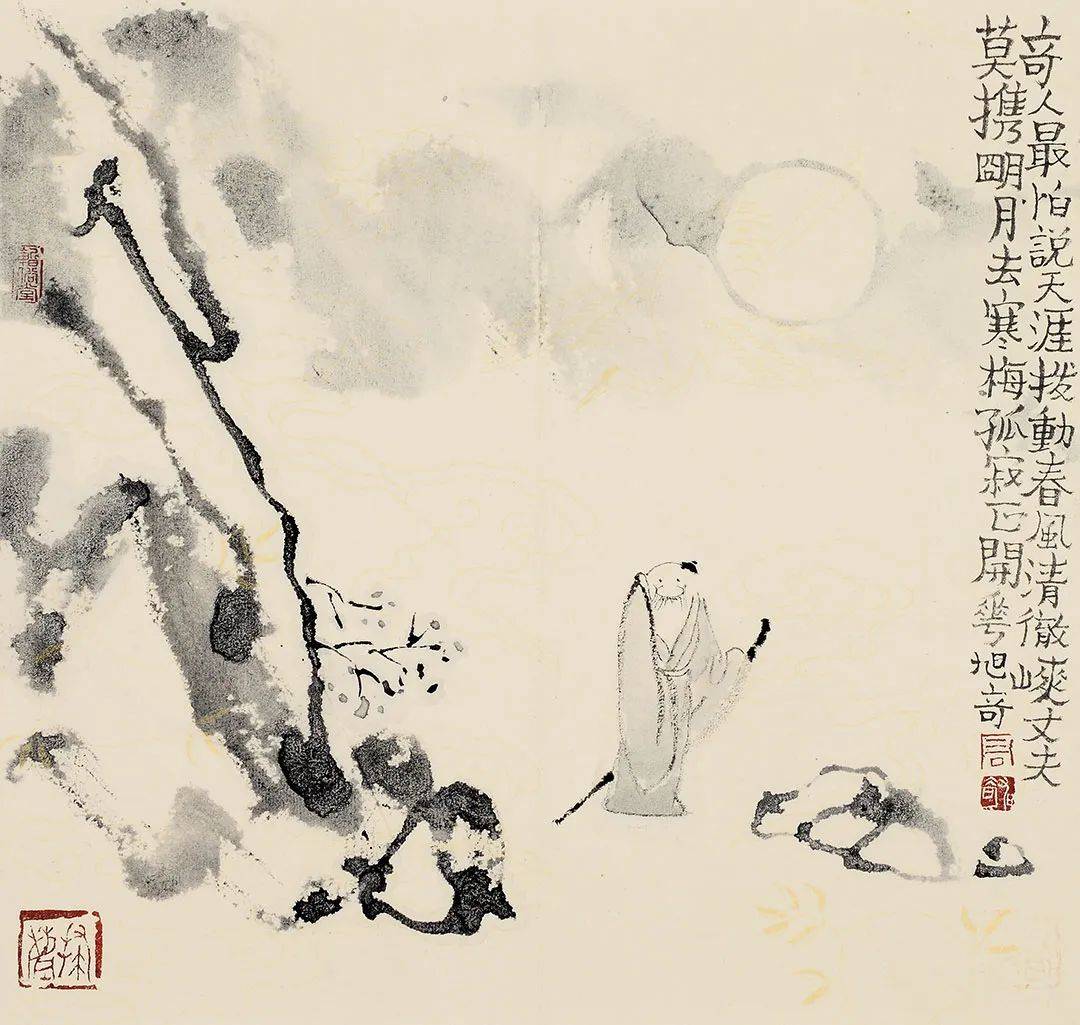 竒人最怕説天涯撥動春風清徹峽丈夫
莫携朙月去寒梅孤寂正開華旭竒